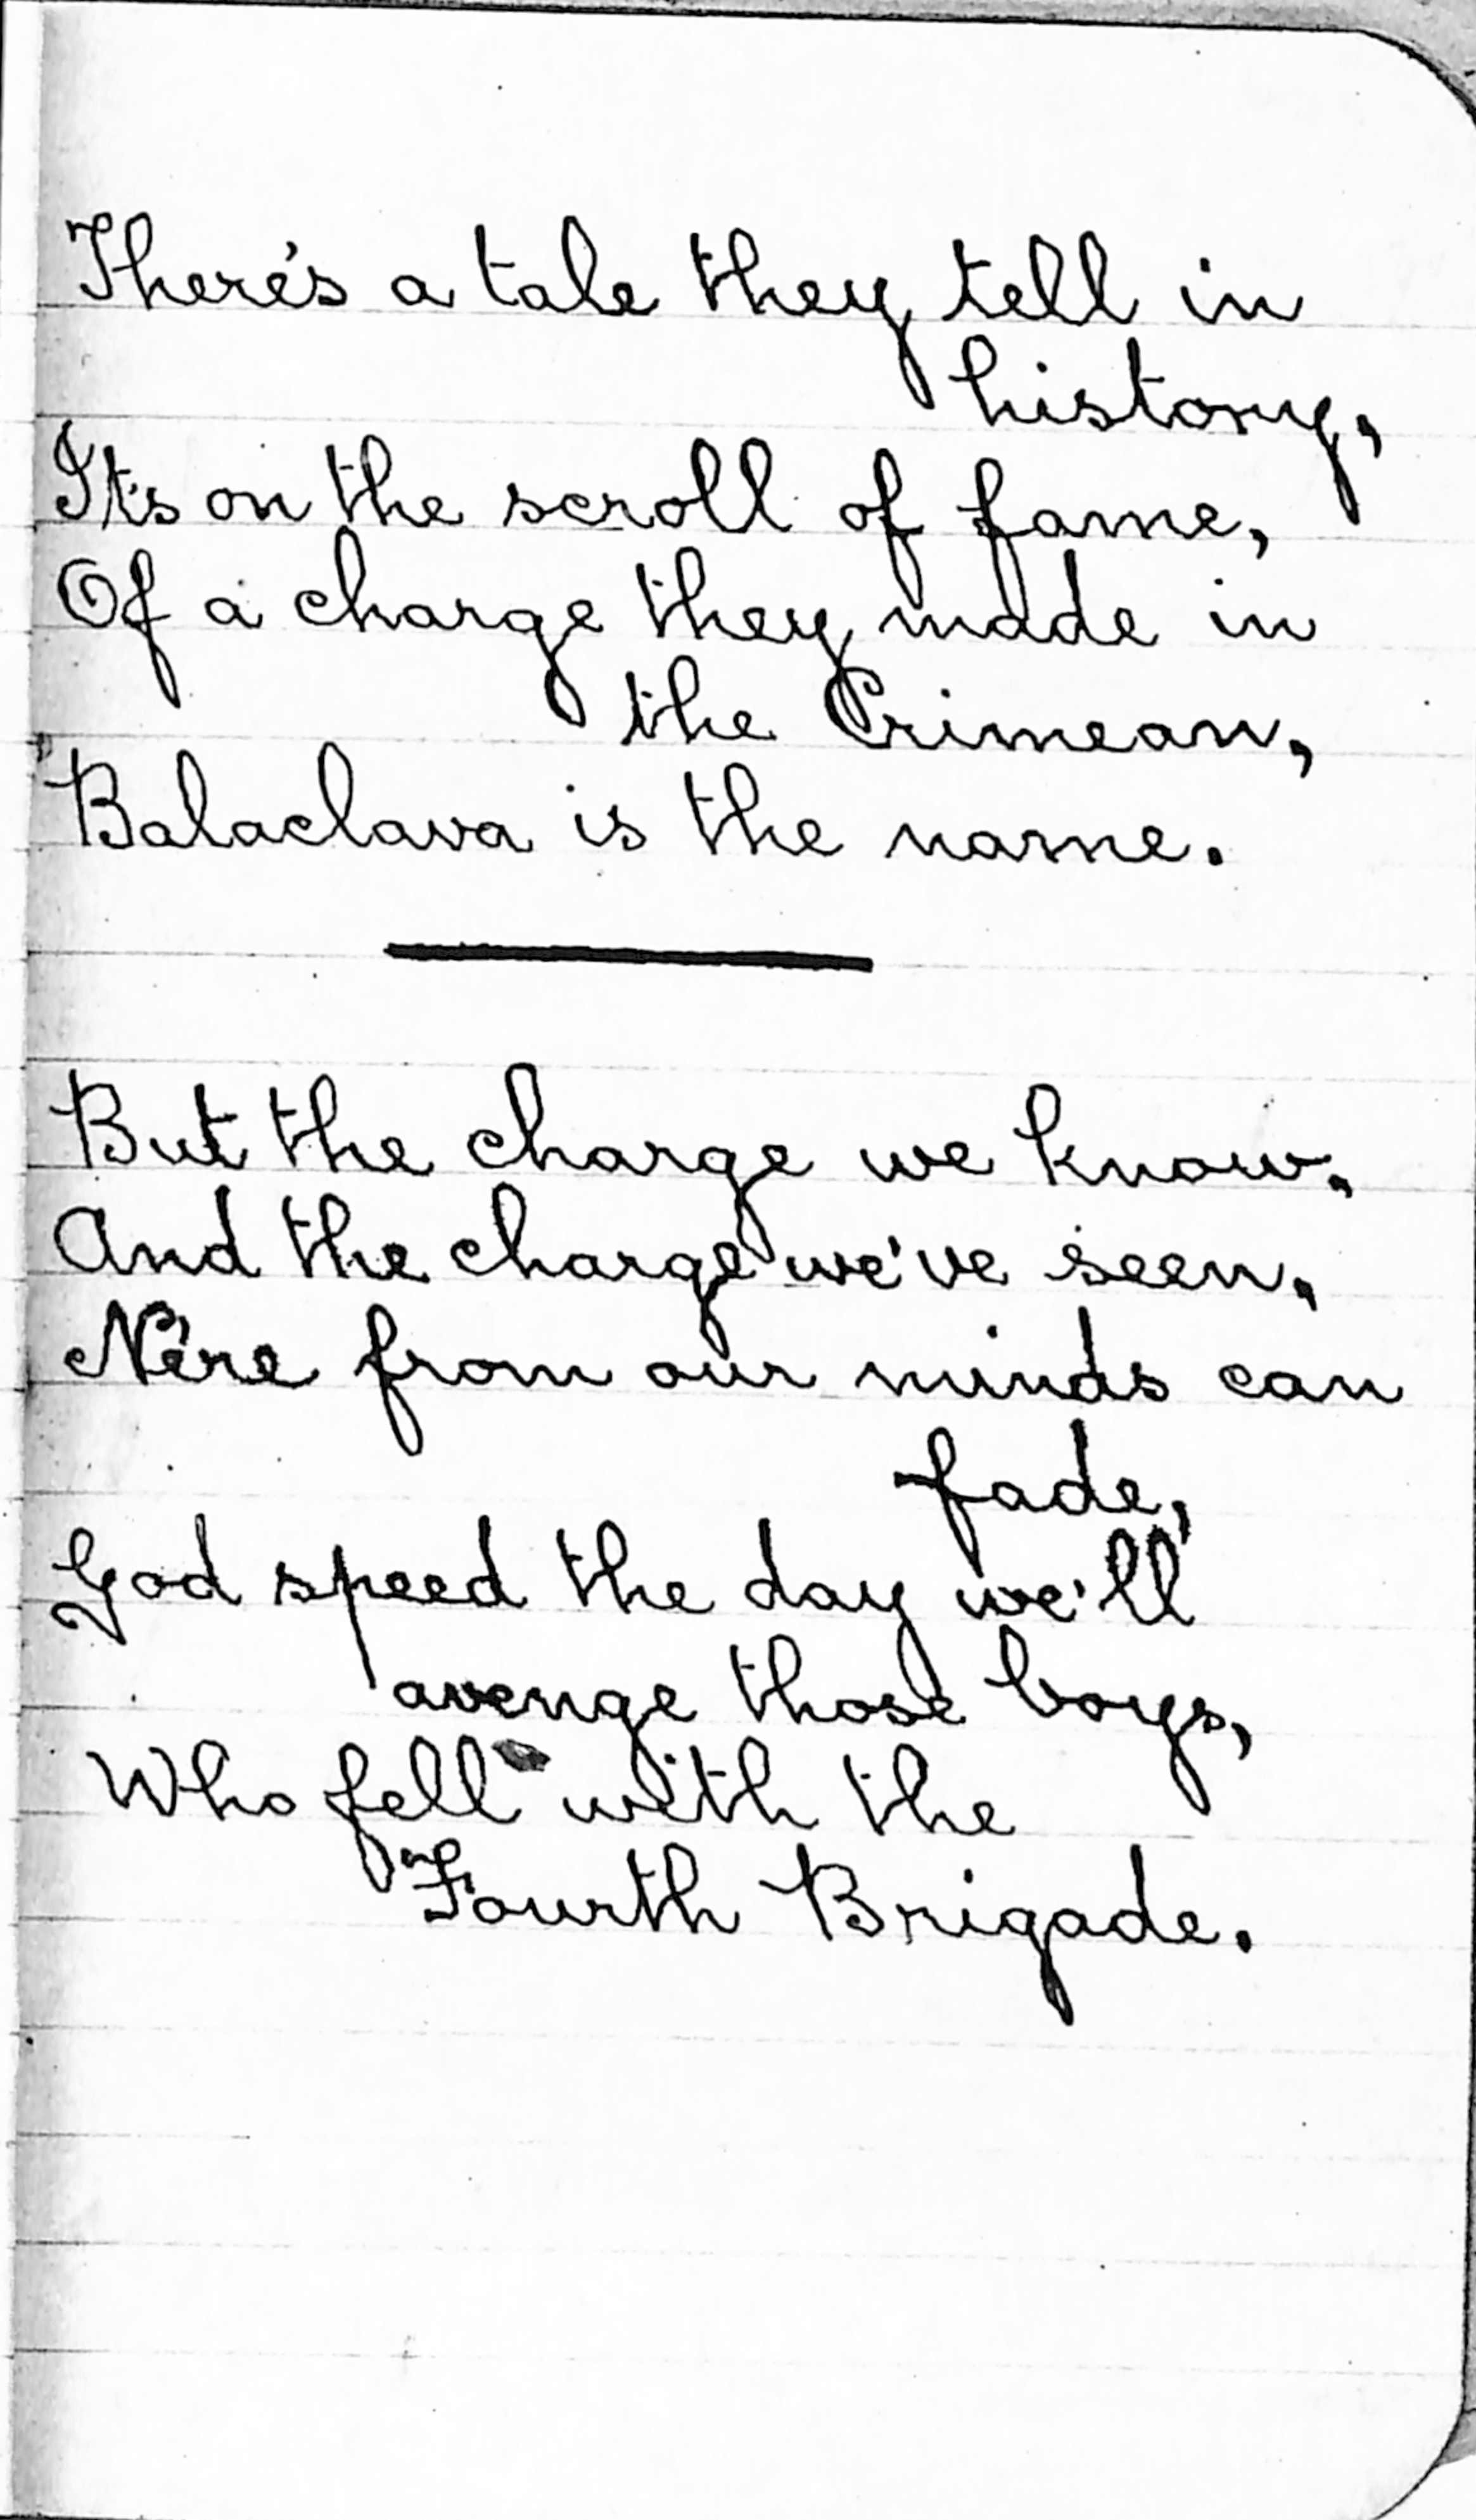 There's a tale they tell in
history,
It's on the scroll of fame,
Of a charge they made in
the Crimean,
Balaclava is the name.
But the charge we know,
And the charge we've seen,
Ne're from our minds can
fade,
God speed the day we'll
avenge those boys,
Who fell with the
Fourth Brigade.